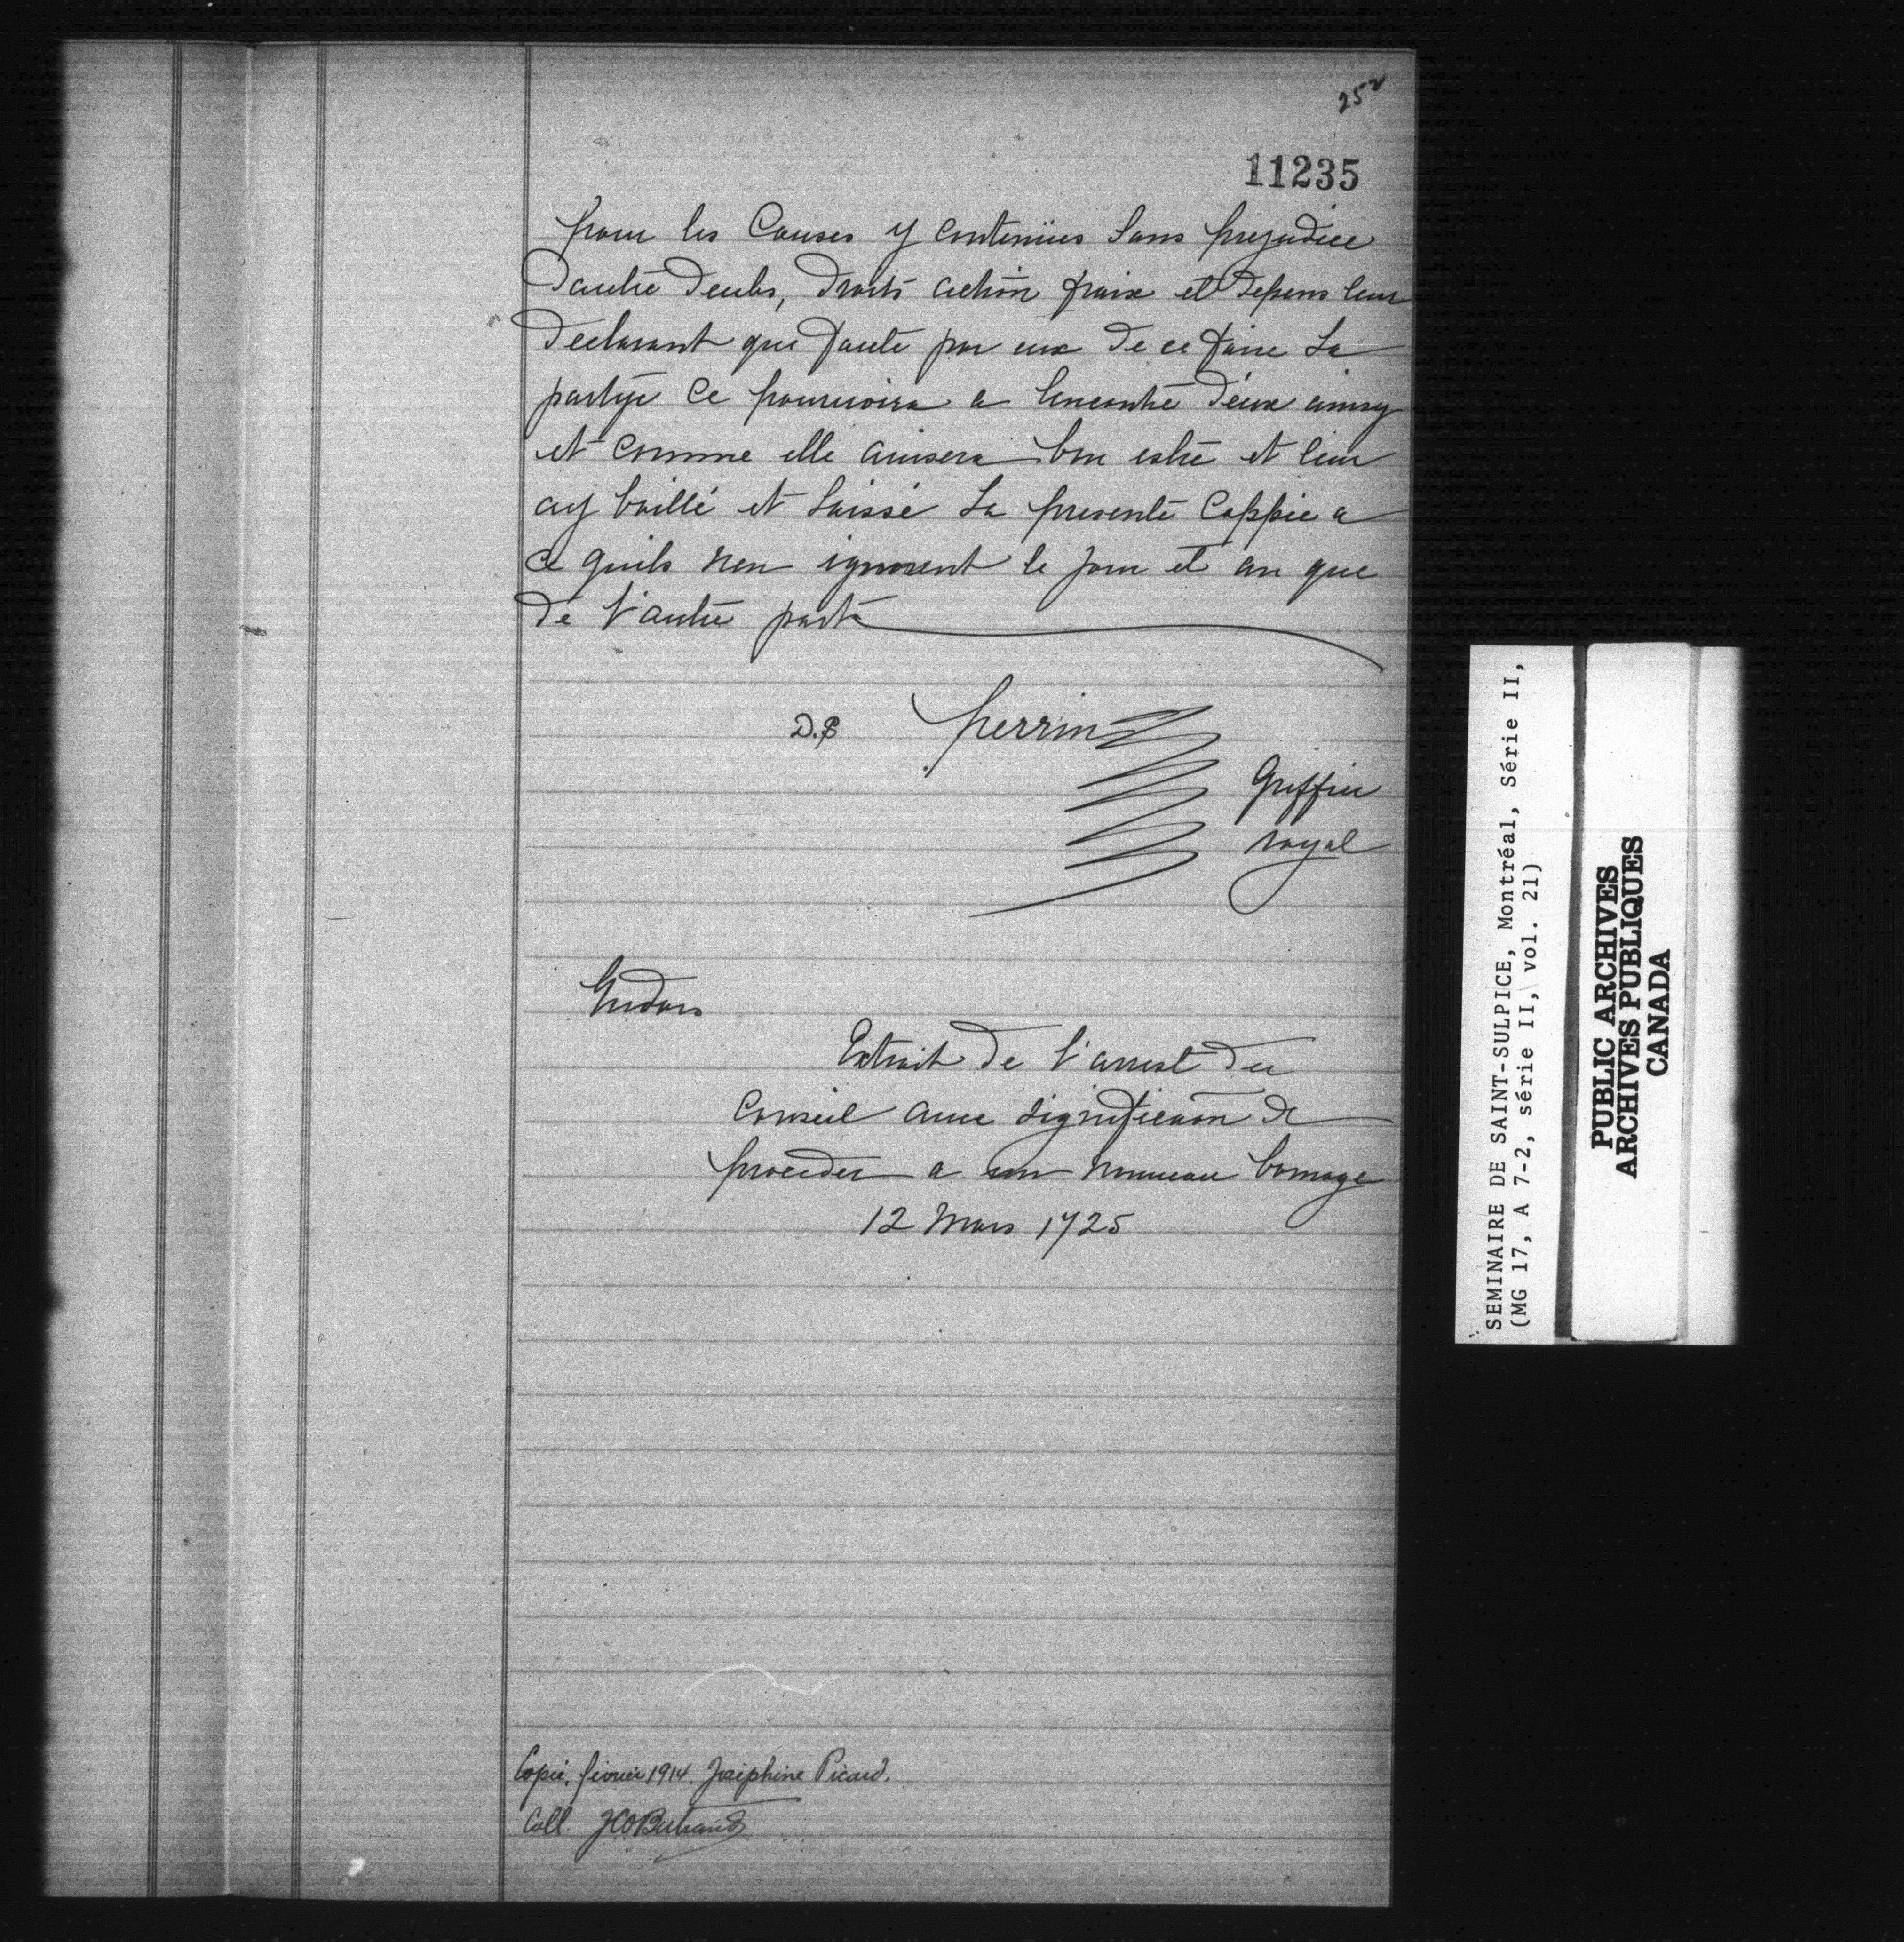 252
11235
pour les Causes y contenües Sans prejudice
Dautre Deubs, Droits action fraix et Depens leur
Declarant que faute par eux De ce faire La
partye Ce pourvoira a lencontre D'eux ainsy
et comme elle auisera bon estre et leur
ay baillé et laissé La presente Coppie a
Ce quils nen ignorent le jour et an que
De l'autre part
perrin
Griffier
royal
Endors
Extrait De l'arrest Du
Conseil auec Signification De
proceder a un nouveau bornage
12 Mars 1725
Copié, février 1914. Joséphine Picard.
Coll. JCOBertrand
SEMINAIRE DE SAINT-SULPICE, Montréal, Série II,
(MG 17, A 7-2, série II, vol. 21)
PUBLIC ARCHIVES
ARCHIVES PUBLIQUES
CANADA